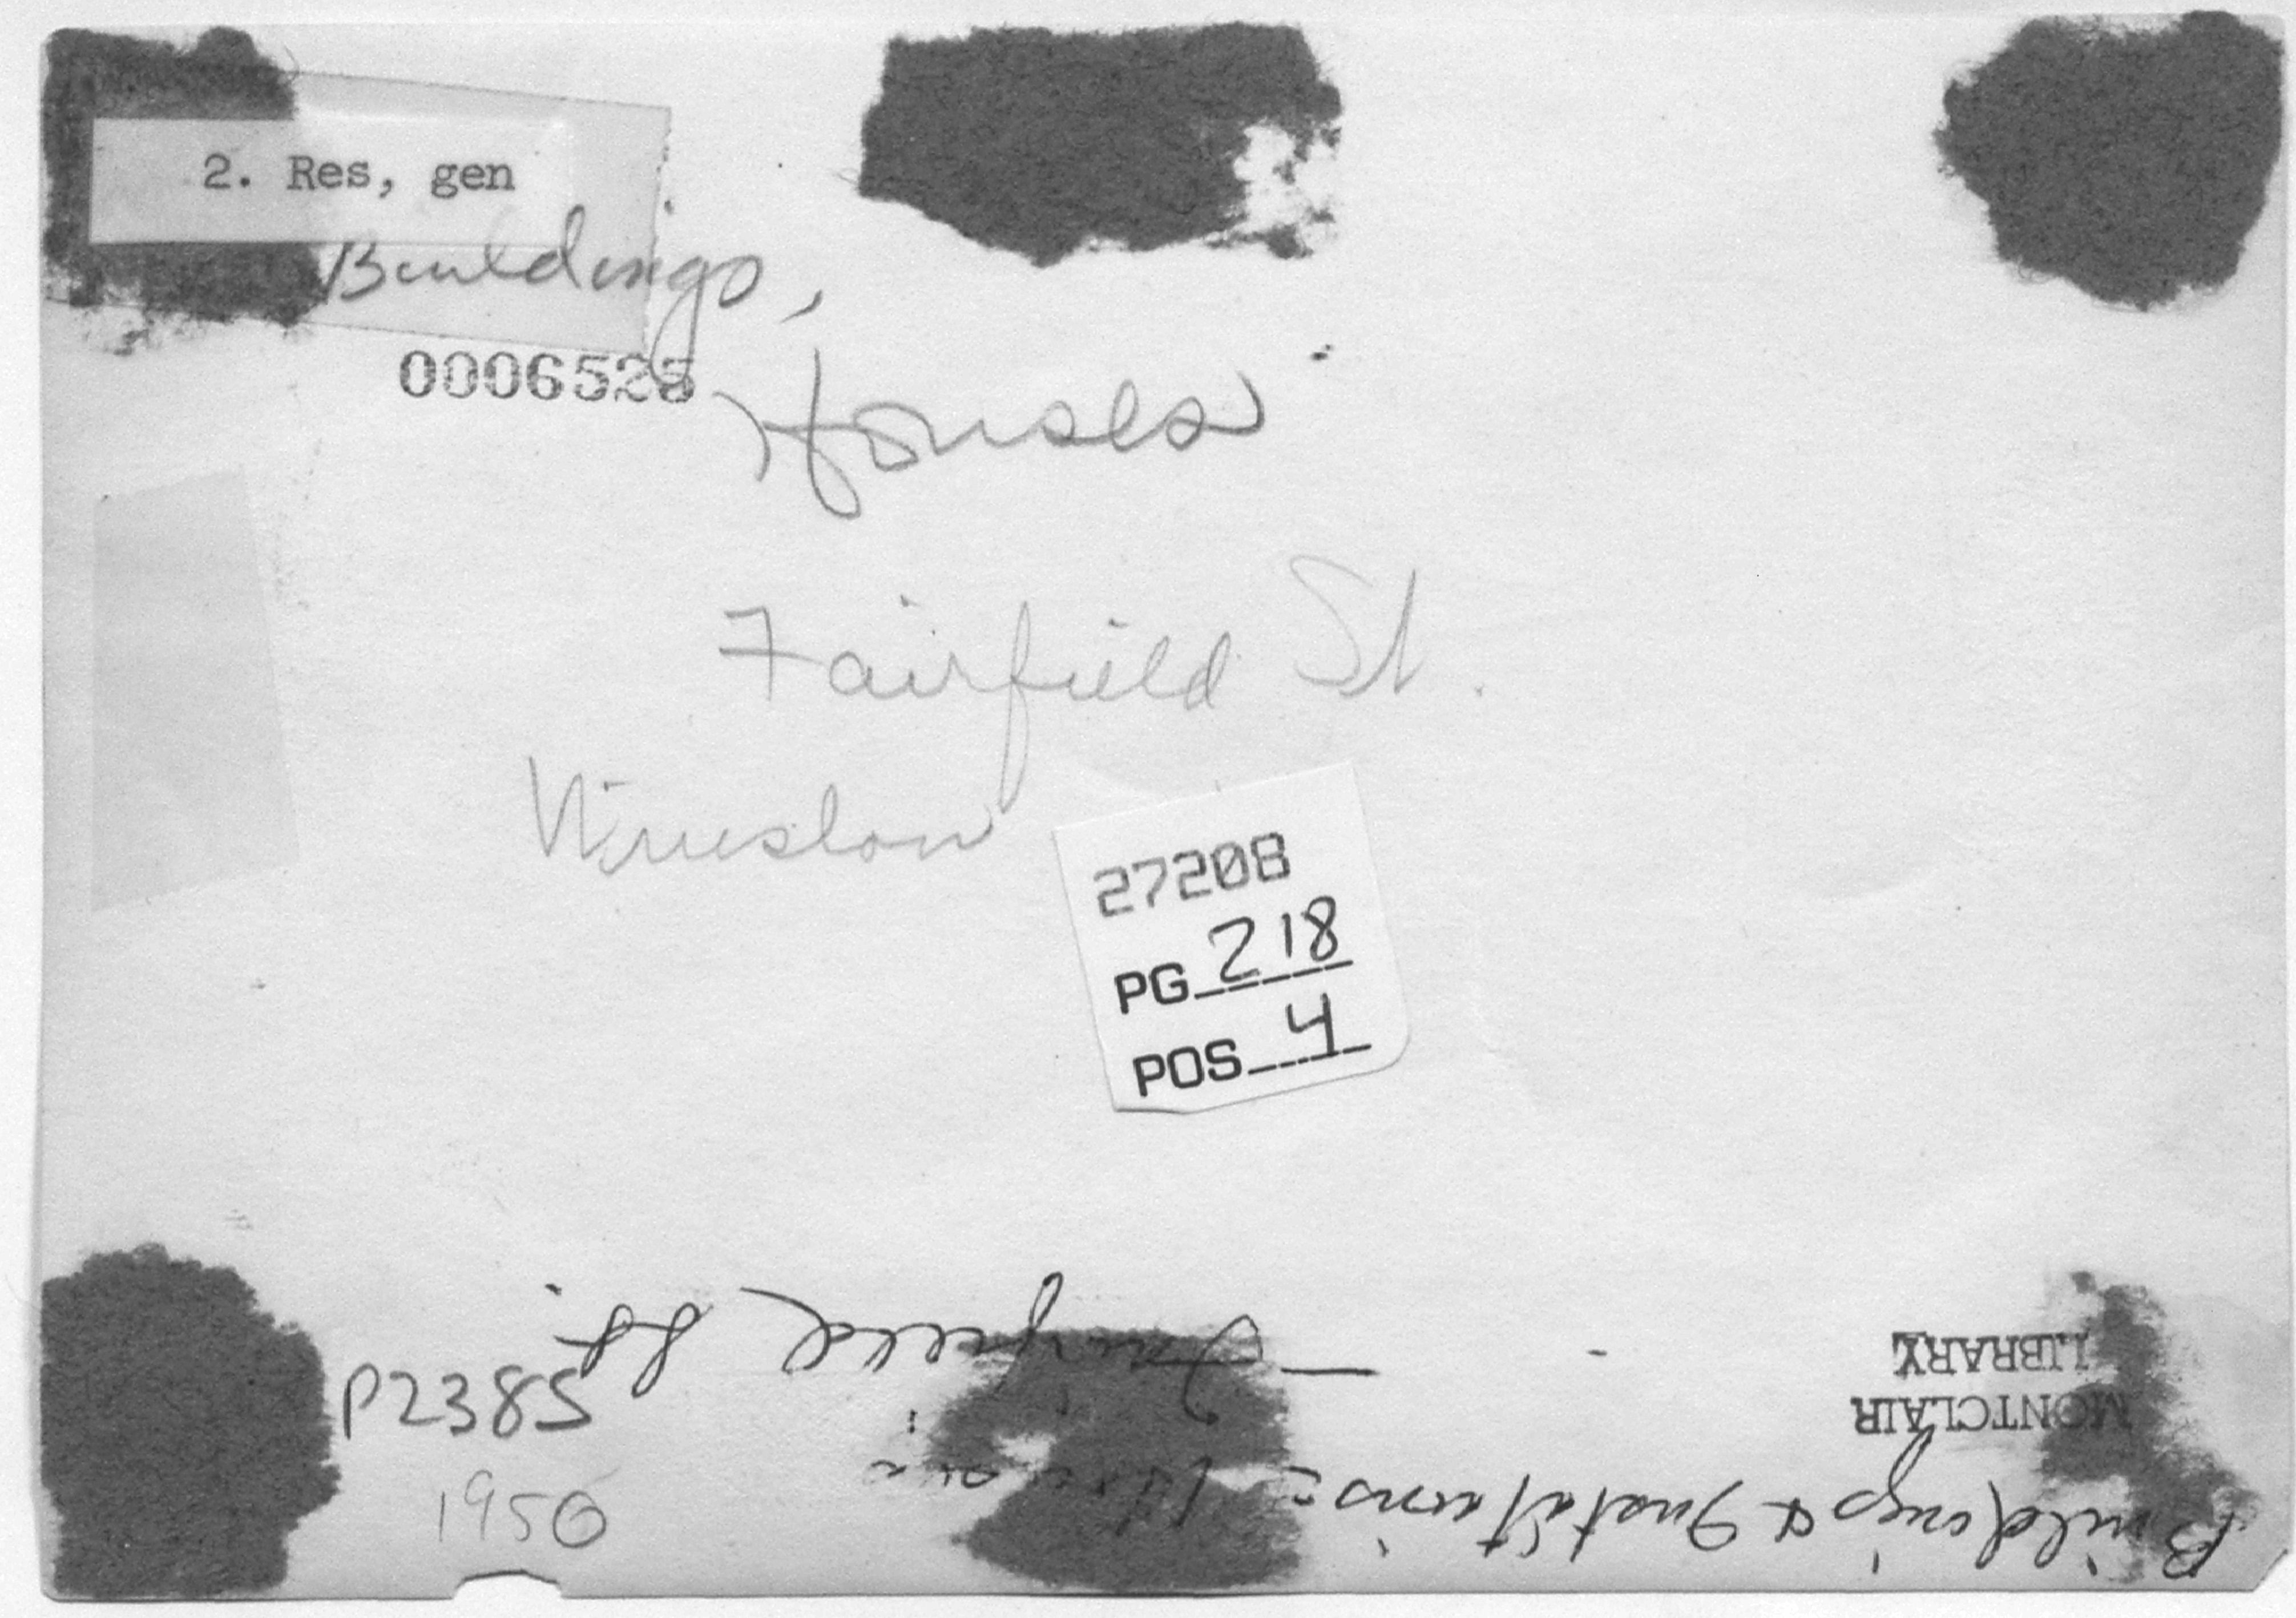 2. Res, gen
Buildings,
0006525
Houses
Fairfield St.
Winslow
27208
PG 218
POS 4
P2385
1950
MONTCLAIR
LIBRARY
Buildings & Installations:
— Fairfield St.